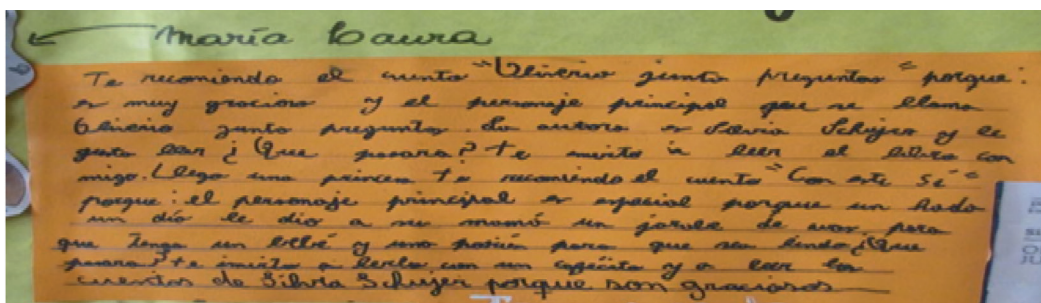 María Laura
Te recomiendo el cuento "Oliverio junta preguntas" porque:
es muy gracioso y el personaje principal que se llama
Oliverio junta preguntas. La autora es Silvia Schujer y le
gusta leer ¿Que pasara? te invito a leer el libro con
migo. Llego una princesa te recomiendo el cuento "Con este sí"
porque: el personaje principal es especial porque un hada
un día le dio a su mamá un jarabe de uvas para
que tenga un bebé y una poción para que sea lindo ¿Que
pasara? te invito a leerlo con un cafécito y a leer los
cuentos de Silvia Schujer porque son graciosos